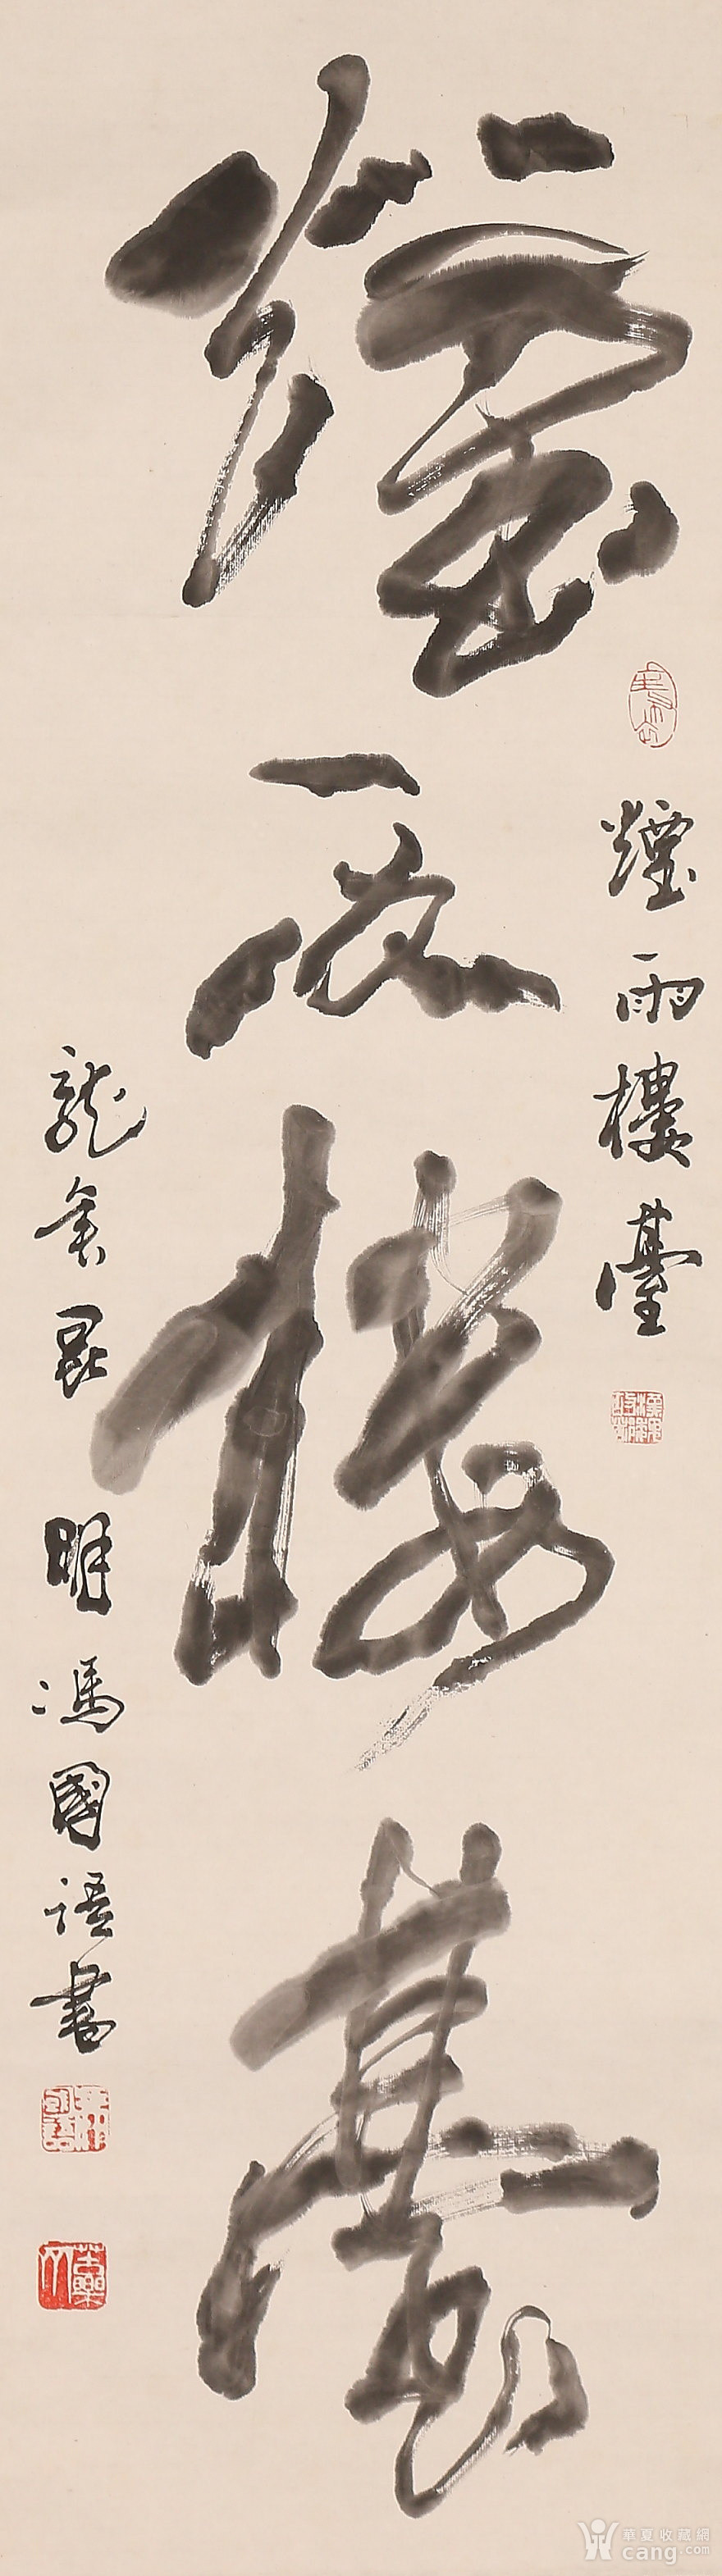 煙雨樓臺
煙雨樓臺
龍年昆明馮國語書
華夏收藏網
cang.com